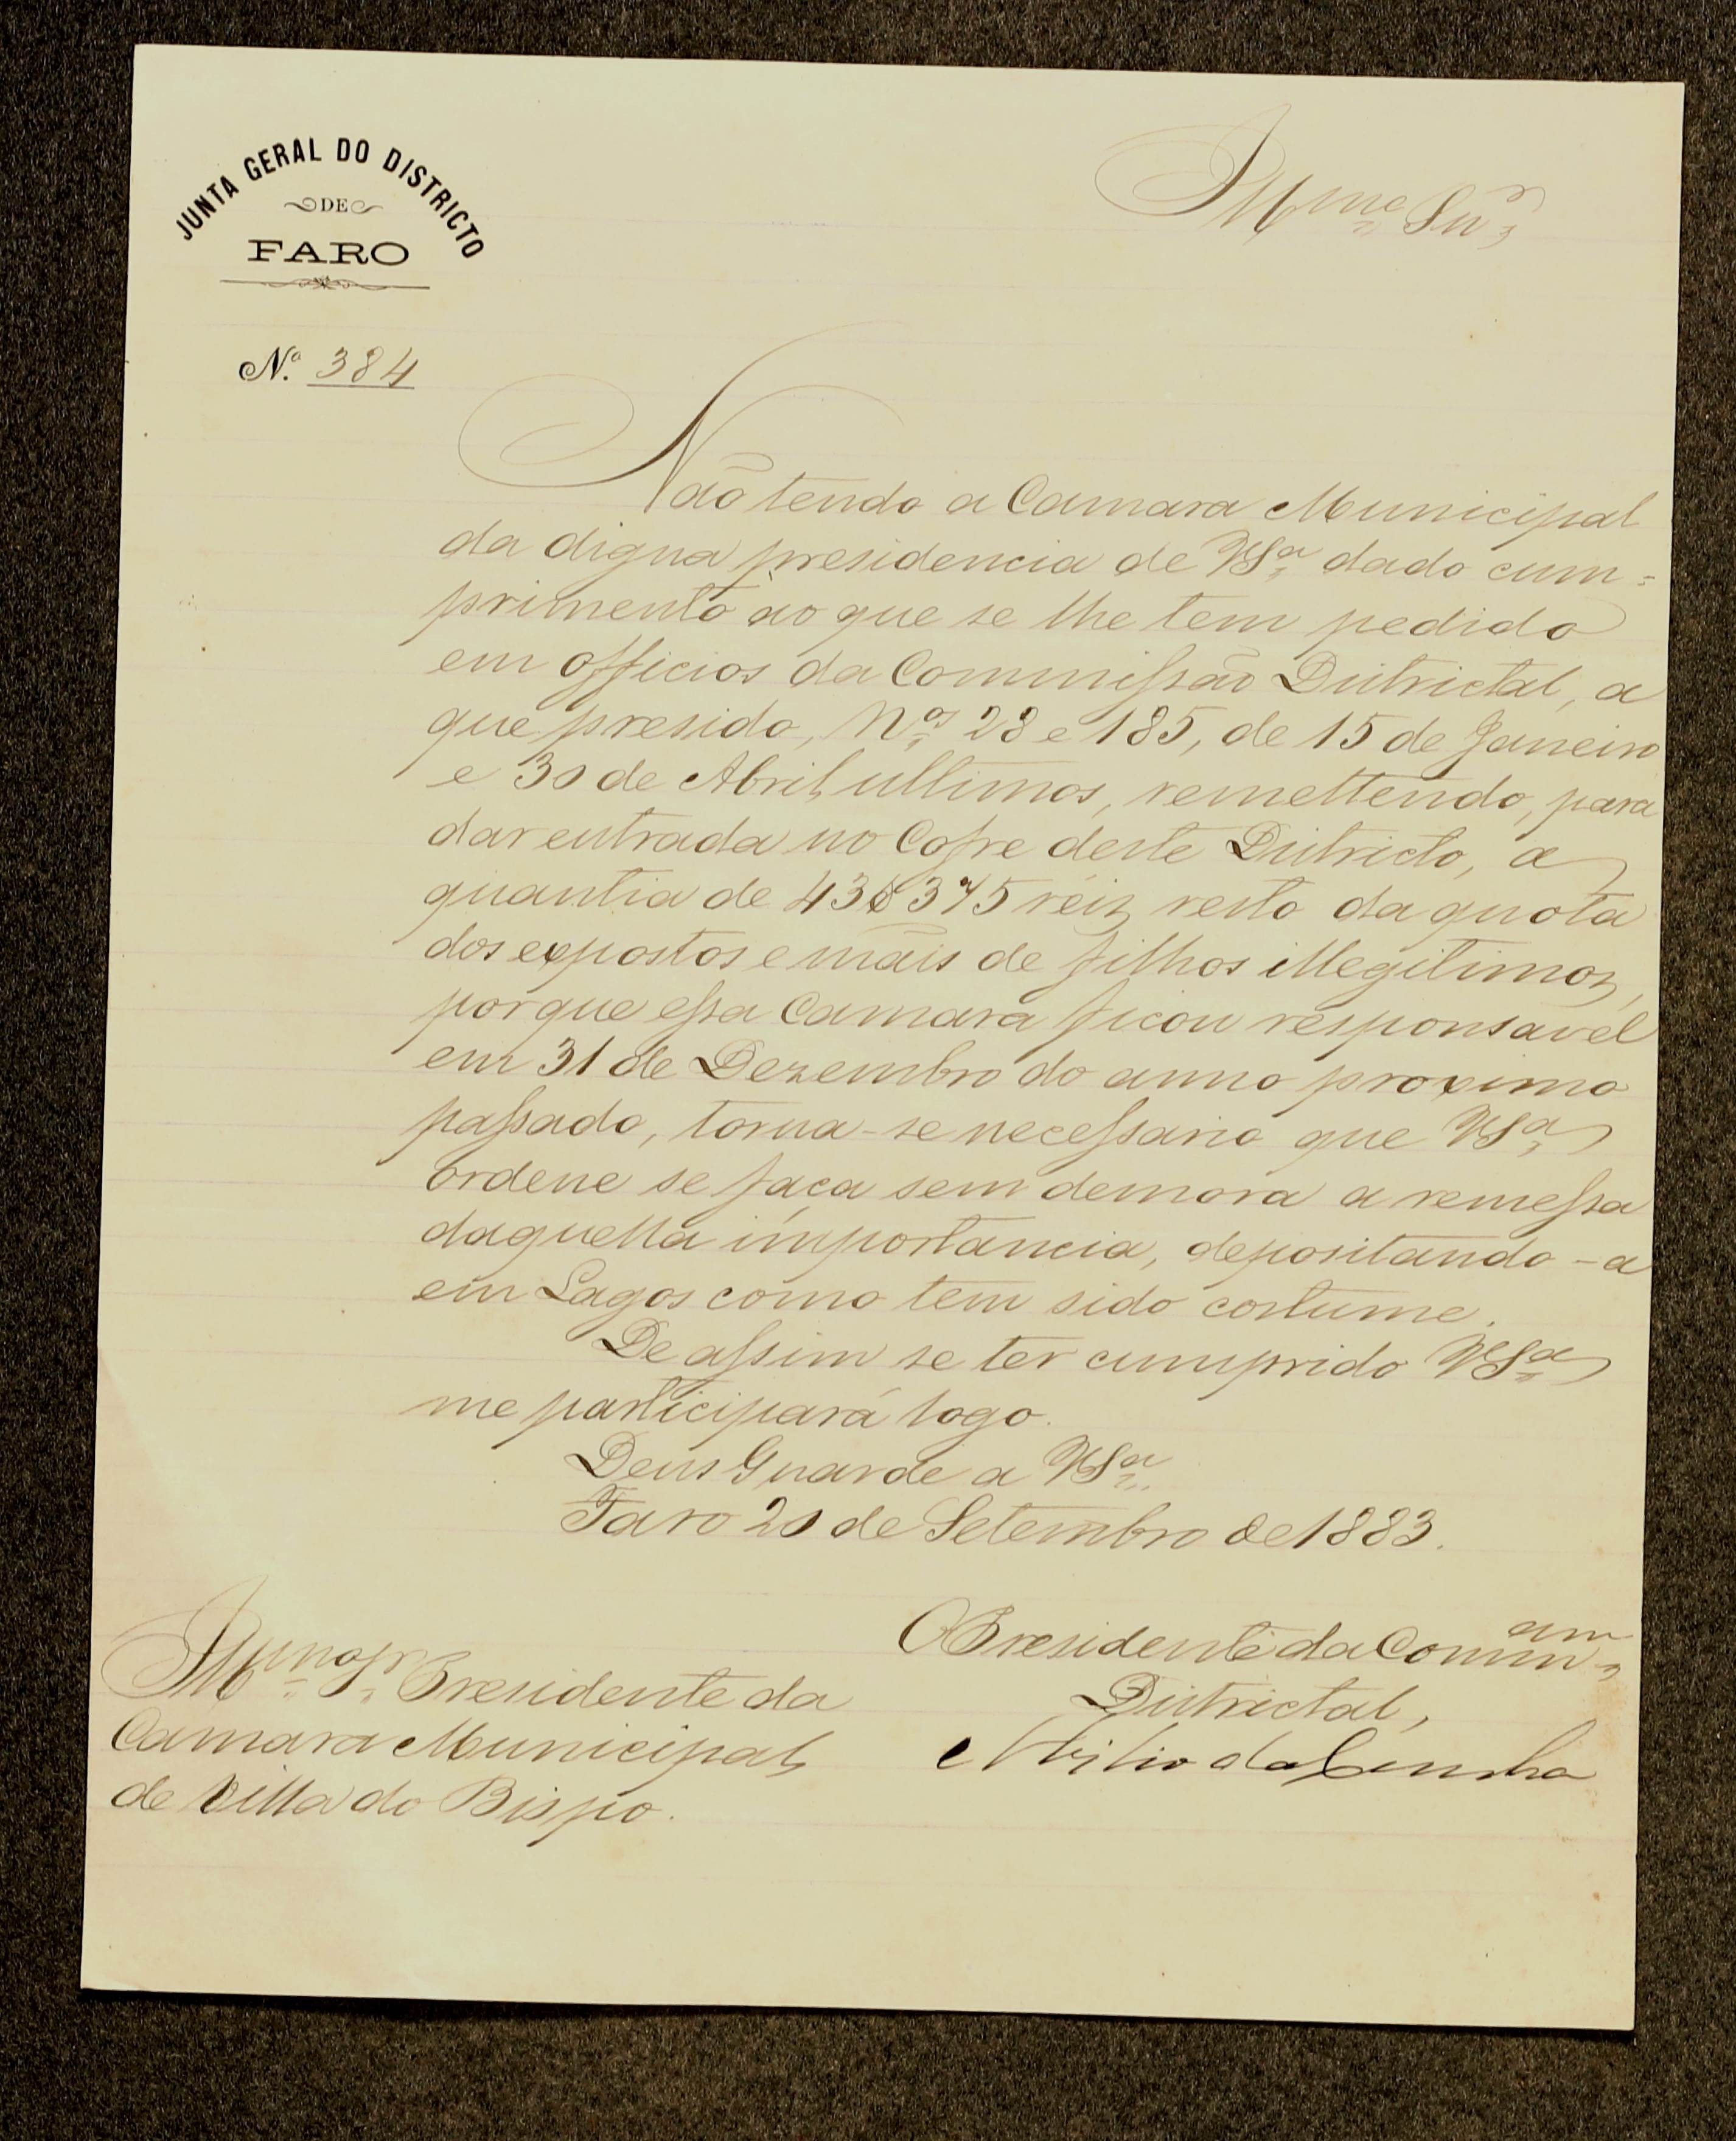 JUNTA GERAL DO DISTRICTO
DE
FARO
N.º 384
Illmo Snr
Não tendo a Camara Municipal
da digna presidencia de VSª dado cum=
primento ao que se lhe tem pedido
em officios da Commissão Districtal, a
que presido, Nos 28 e 185, de 15 de Janeiro
e 30 de Abril ultimos, remettendo, para
dar entrada no Cofre deste Districto, a
quantia de 43$375 réis, resto da quota
dos expostos e mãis de filhos illegitimos,
porque essa Camara ficou responsavel
em 31 de Dezembro do anno proximo
passado, torna-se necessario que VSª
ordene se faça sem demora a remessa
daquella importancia, depositando-a
em Lagos como tem sido costume.
De assim se ter cumprido VSª
me participará logo.
Deus Guarde a VSª
Faro 20 de Setembro de 1883.
O Presidente da Commam
Districtal,
Illmo Sr Presidente da
Camara Municipal
de Villa do Bispo.
da Cunha